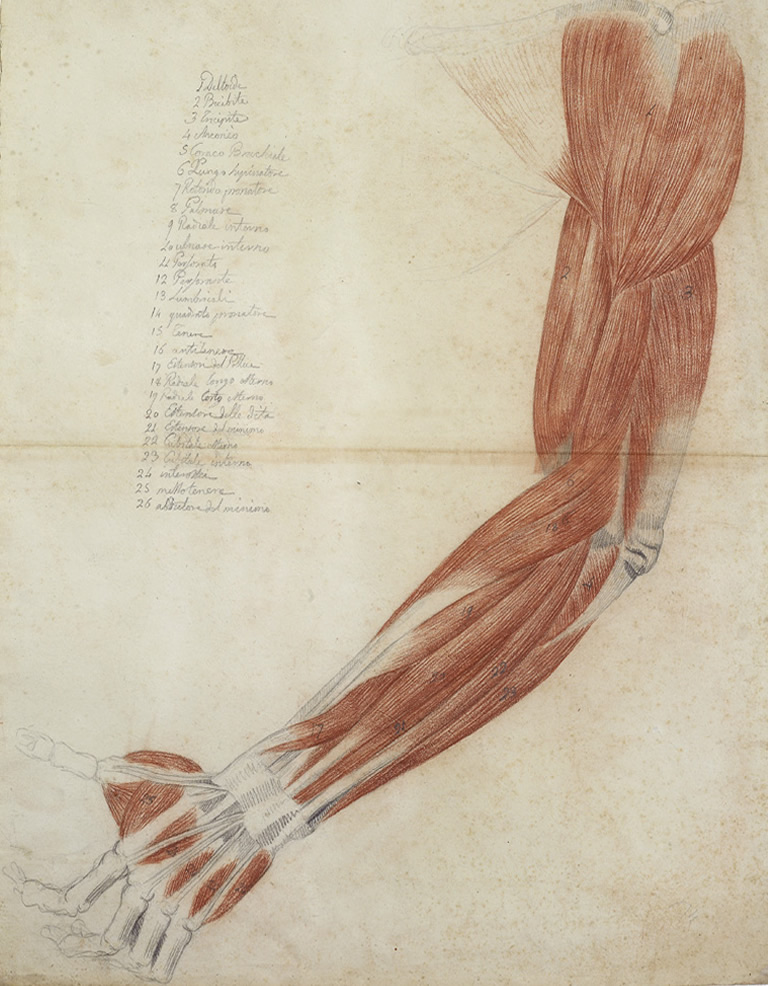 1 Deltoide
2 Bicibite
3 Tricipite
4 Anconeo
5 Coraco Brachiale
6 Lungo supinatore
7 Rotondo pronatore
8 Palmare
9 Radiale interno
10 ulnare interno
11 Perforato
12 Perforante
13 Lumbricali
14 quadrato pronatore
15 Tenare
16 antitenare
17 Estensori del Pollice
18 Radiale Longo esterno
19 Radiale Corto esterno
20 Estensore delle dita
21 Estensore del minimo
22 Cubitale esterno
23 Cubitale interno
24 interossei
25 mesotenare
26 abbutore del minimo
2
3